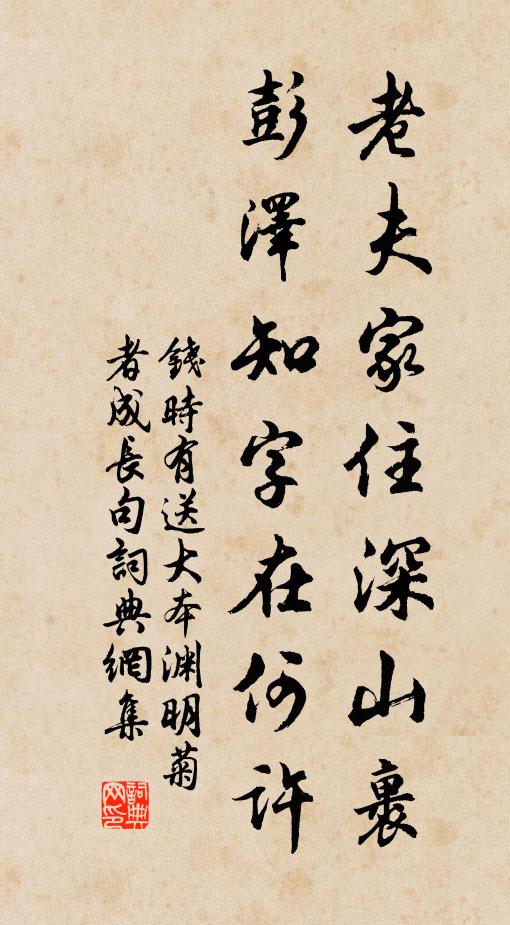 老夫家住深山裏
彭澤知字在何許
錢時有送大本淵明菊
者成長句詞典網集
詞典网印